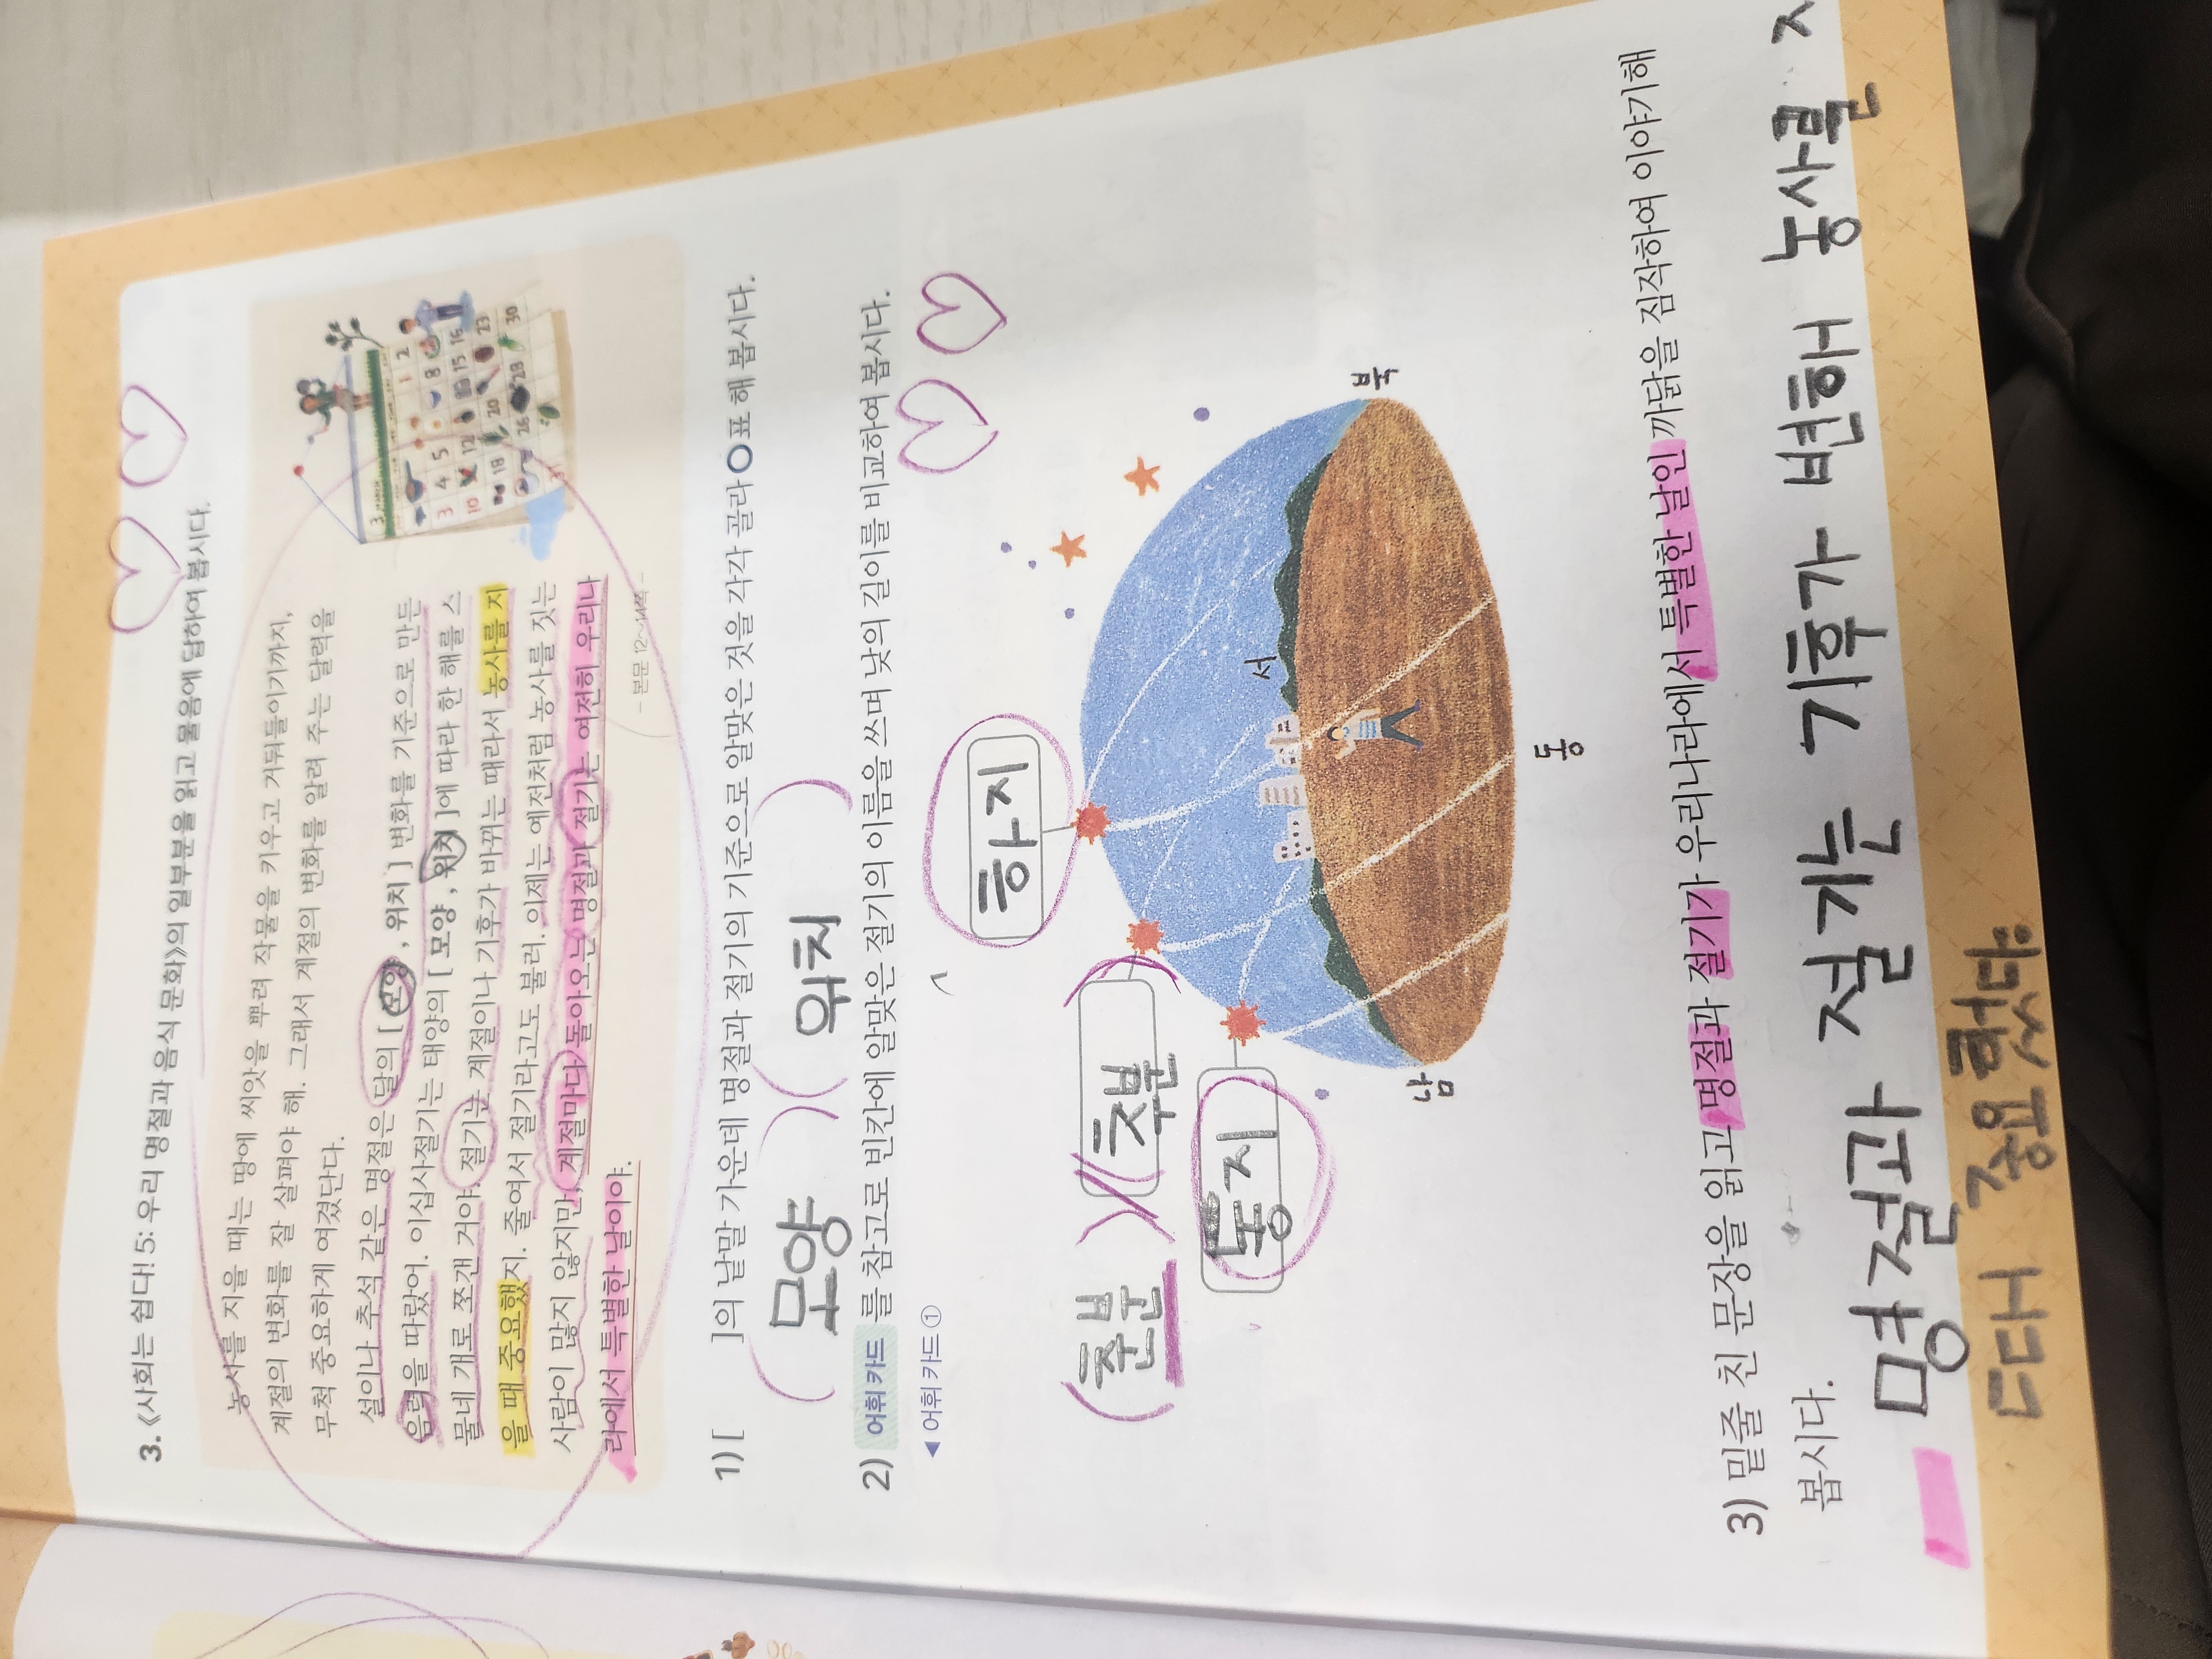 3. 《사회는 쉽다! 5: 우리 명절과 음식 문화》의 일부분을 읽고 물음에 답하여 봅시다.
농사를 지을 때는 땅에 씨앗을 뿌려 작물을 키우고 거둬들이기까지,
계절의 변화를 잘 살펴야 해. 그래서 계절의 변화를 알려 주는 달력을
무척 중요하게 여겼단다.
설이나 추석 같은 명절은 달의 [ 모양, 위치 ] 변화를 기준으로 만든
음력을 따랐어. 이십사절기는 태양의 [ 모양, 위치 ]에 따라 한 해를 스
물네 개로 쪼갠 거야. 절기는 계절이나 기후가 바뀌는 때라서 농사를 지
을 때 중요했지. 줄여서 절기라고도 불러. 이제는 예전처럼 농사를 짓는
사람이 많지 않지만, 계절마다 돌아오는 명절과 절기는 여전히 우리나
라에서 특별한 날이야.
- 본문 12~14쪽 -
3 MARCH
1 2
3 4 5 8
10 12 15 16
18 20 23
26 28 30
1) [ ]의 낱말 가운데 명절과 절기의 기준으로 알맞은 것을 각각 골라 ○표 해 봅시다.
( 모양 ) ( 위치 )
2) 어휘 카드 를 참고로 빈칸에 알맞은 절기의 이름을 쓰며 낮의 길이를 비교하여 봅시다.
◀ 어휘 카드 ①
하지
(춘분) (추분
동지
서
북
남
동
3) 밑줄 친 문장을 읽고 명절과 절기가 우리나라에서 특별한 날인 까닭을 짐작하여 이야기해
봅시다.
명절과 절기는 기후가 변해 농사를
때 중요했다.